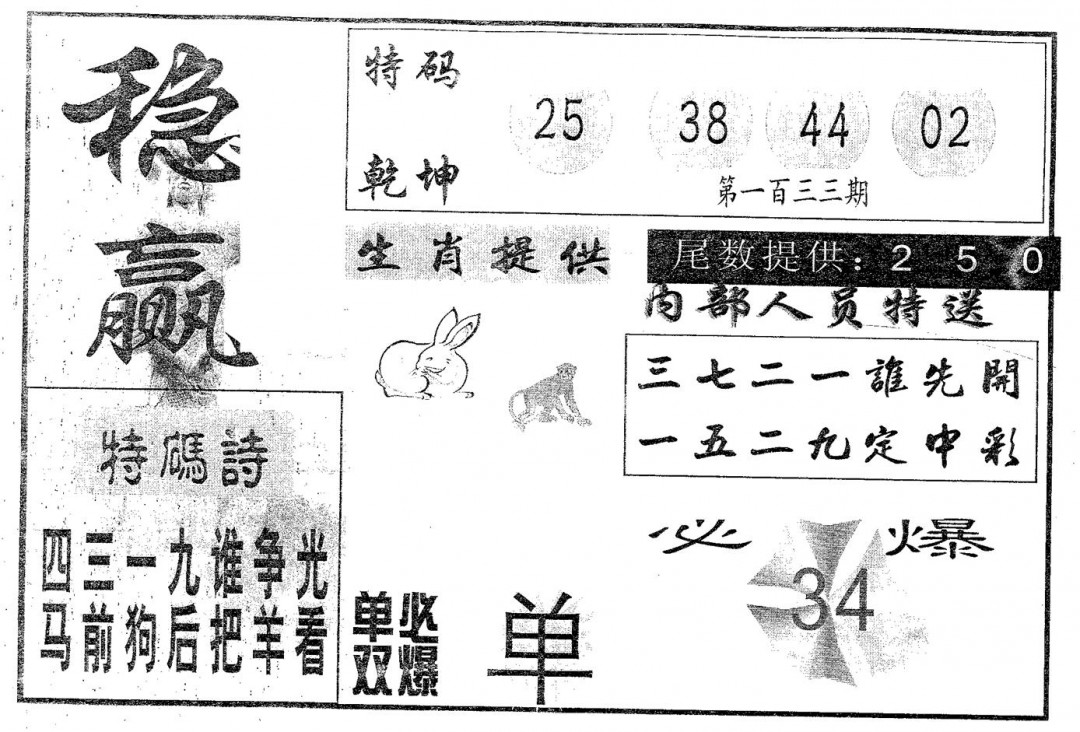 稳赢
特码
乾坤
25 38 44 02
第一百三三期
生肖提供
尾数提供: 2 5 0
内部人员特送
三七二一誰先開
一五二九定中彩
特碼詩
四三一九谁争光
马前狗后把羊看
单双
必爆
单
必爆
34